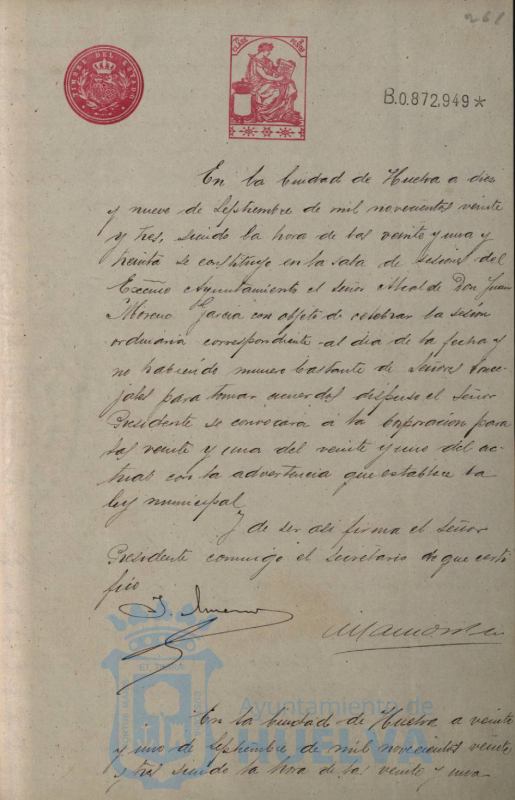 261
TIMBRE DEL ESTADO
B.0.872.949*
En la Ciudad de Huelva a diez
y nueve de Septiembre de mil novecientos veinte
y tres, siendo la hora de las veinte y una y
treinta se constituyo en la sala de sesiones del
Excmo Ayuntamiento el señor Alcalde Don Juan
Moreno Garcia con objeto de celebrar la sesion
ordinaria correspondiente al dia de la fecha y
no habiendo numero bastante de Señores Conce-
jales para tomar acuerdos dispuso el señor
Presidente se convocara á la Corporacion para
las veinte y una del veinte y uno del ac-
tual con la advertencia que establece la
ley municipal
Y de ser asi firma el señor
Presidente conmigo el secretario de que certi
fico
J. Moreno
Ayuntamiento de
HUELVA
En la Ciudad de Huelva a veinte
y uno de Septiembre de mil novecientos veinte
y tres siendo la hora de las veinte y una